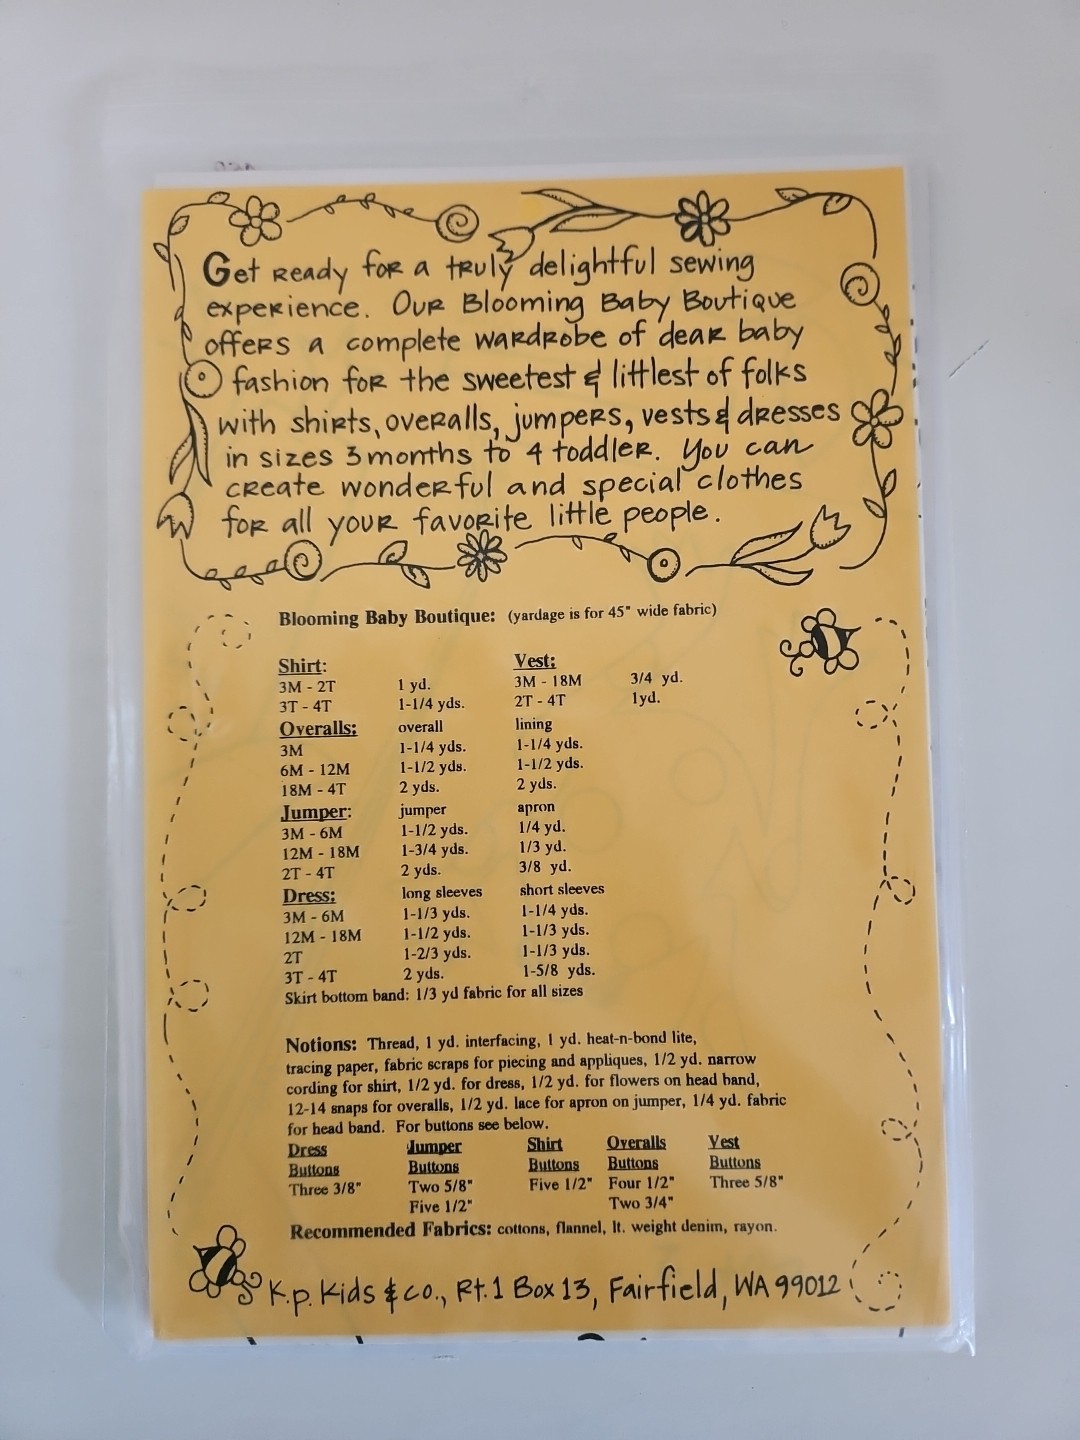 Get Ready for a truly delightful sewing
experience. Our Blooming Baby Boutique
offers a complete wardrobe of dear baby
fashion for the sweetest & littlest of folks
with shirts, overalls, jumpers, vests & dresses
in sizes 3 months to 4 toddler. You can
create wonderful and special clothes
for all your favorite little people.
Blooming Baby Boutique: (yardage is for 45" wide fabric)
Shirt: Vest:
3M - 2T 1 yd. 3M - 18M 3/4 yd.
3T - 4T 1-1/4 yds. 2T - 4T 1yd.
Overalls: overall lining
3M 1-1/4 yds. 1-1/4 yds.
6M - 12M 1-1/2 yds. 1-1/2 yds.
18M - 4T 2 yds. 2 yds.
Jumper: jumper apron
3M - 6M 1-1/2 yds. 1/4 yd.
12M - 18M 1-3/4 yds. 1/3 yd.
2T - 4T 2 yds. 3/8 yd.
Dress: long sleeves short sleeves
3M - 6M 1-1/3 yds. 1-1/4 yds.
12M - 18M 1-1/2 yds. 1-1/3 yds.
2T 1-2/3 yds. 1-1/3 yds.
3T - 4T 2 yds. 1-5/8 yds.
Skirt bottom band: 1/3 yd fabric for all sizes
Notions: Thread, 1 yd. interfacing, 1 yd. heat-n-bond lite,
tracing paper, fabric scraps for piecing and appliques, 1/2 yd. narrow
cording for shirt, 1/2 yd. for dress, 1/2 yd. for flowers on head band,
12-14 snaps for overalls, 1/2 yd. lace for apron on jumper, 1/4 yd. fabric
for head band. For buttons see below.
Dress Jumper Shirt Overalls Vest
Buttons Buttons Buttons Buttons Buttons
Three 3/8" Two 5/8" Five 1/2" Four 1/2" Three 5/8"
Five 1/2" Two 3/4"
Recommended Fabrics: cottons, flannel, lt. weight denim, rayon.
K.p. Kids & co., Rt. 1 Box 13, Fairfield, WA 99012